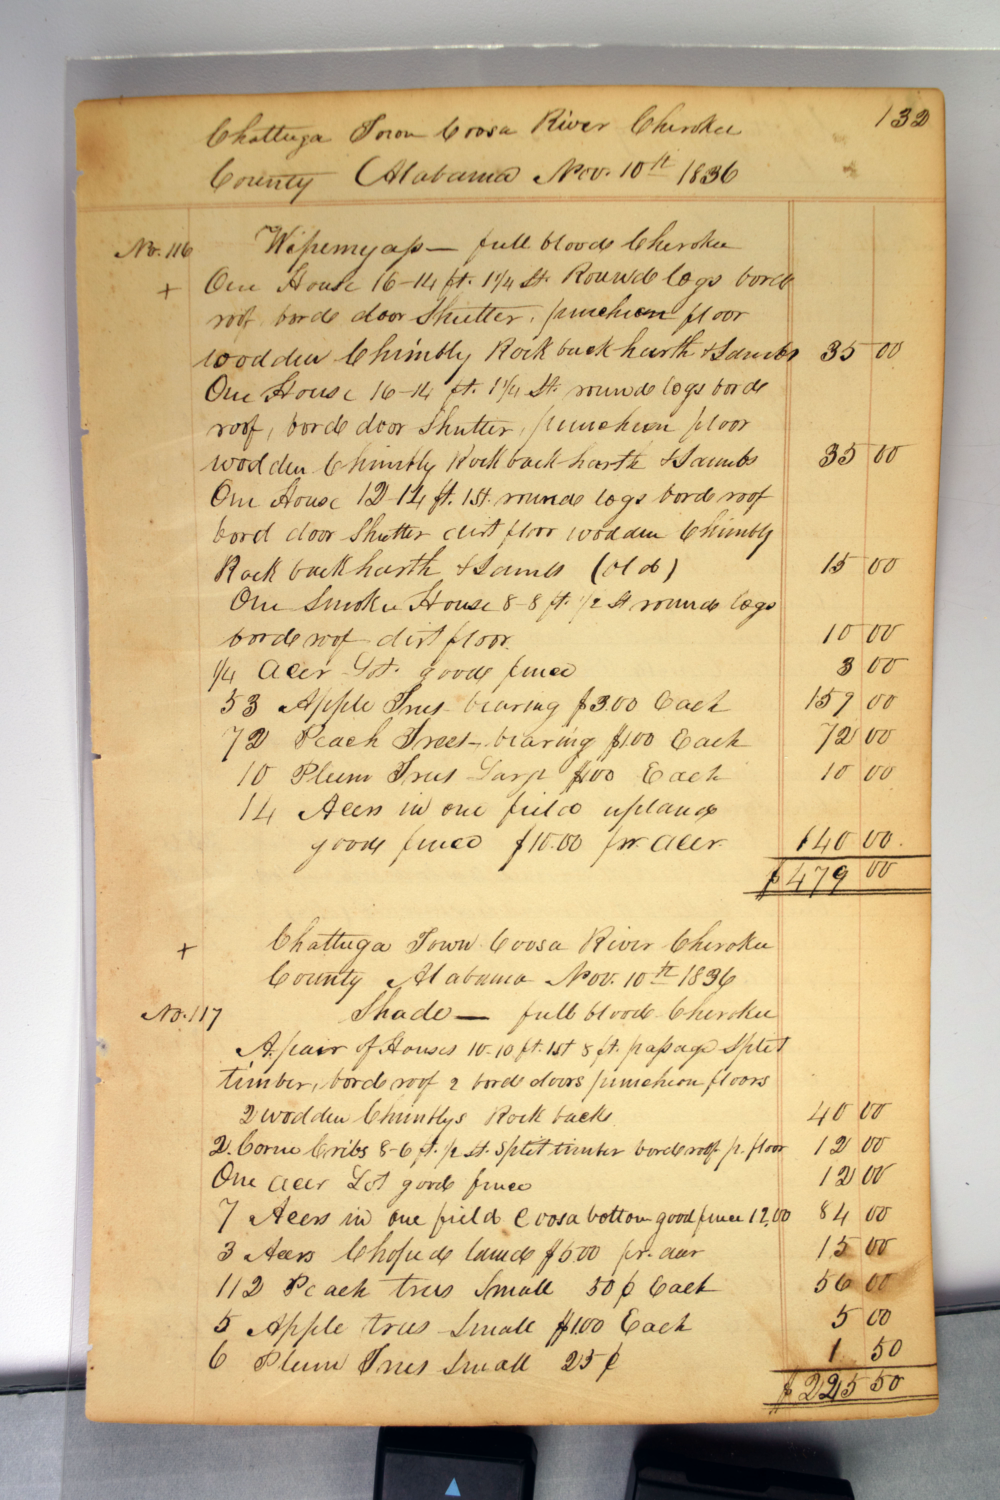 132
Chattuga Town Coosa River Cherokee
County Alabama Nov. 10th 1836
No. 116 Wipemyap — full bloode Cherokee
+ One House 16-14 ft. 1 1/4 St. Rounde logs borde
roof borde door Shutter, puncheon floor
wodden Chimbly Rock back harth & Jambs 35 00
One House 16-14 ft. 1 1/4 St. rounde logs borde
roof, borde door Shutter, puncheon floor
wodden Chimbly Rock back harth & Jambs 35 00
One House 12-14 ft. 1 St. rounde logs borde roof
bord door Shutter dirt floor wodden Chimbly
Rock back harth & Jambs (old) 15 00
One Smoke House 8-8 ft. 1/2 St rounde logs
borde roof dirt floor. 10 00
1/4 Acer Lot. goode fence 3 00
53 Apple Trees bearing $3.00 Each 159 00
72 Peach Trees bearing $1.00 Each 72 00
10 Plum Trees Large $1.00 Each 10 00
14 Acers in one field uplande
goode fence $10.00 pr. Acer 140 00.
$479 00
+ Chattuga Town Coosa River Cherokee
County Alabama Nov. 10th 1836
No. 117 Shade — full bloode Cherokee
A pair of Houses 10-10 ft. 1 St 8 ft. passage Split
timber, borde roof 2 borde doors puncheon floors
2 wodden Chimblys Rock backs 40 00
2. Corne Cribs 8-6 ft. 1/2 St. Split timber borde roof p. floor 12 00
One acer Lot goode fence 12 00
7 Acers in one field Coosa bottom good fence 12.00 84 00
3 Acers Chopede lande $5.00 pr. acer 15 00
112 Peach trees Small 50 ¢ Each 56 00
5 Apple trees Small $1.00 Each 5 00
6 Plum Trees Small 25 ¢ 1. 50
$225 50